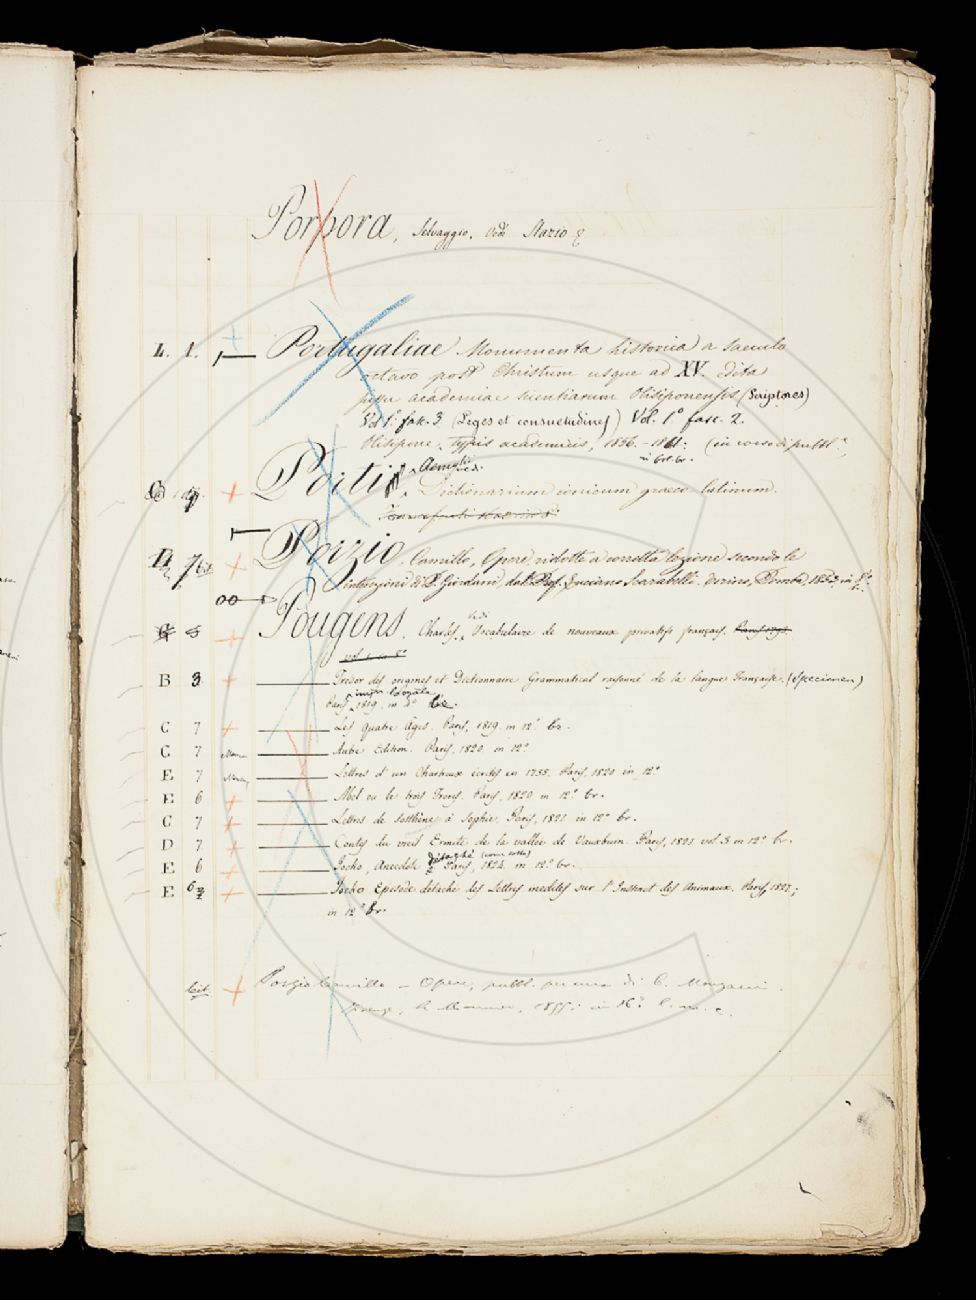 Porpora, Selvaggio. Vedi Stazio
L. 1. Portugaliae Monumenta historica a saeculo
octavo post Christum usque ad XV. edita
jussu academiae scientiarum Olisiponensis (Scriptores)
Vol 1. fasc. 3 (Leges et consuetudines) Vol. 1.° fasc. 2.
Olisipone, Typis academicis, 1856-1861: (in corso di pubbl.e
in fol. br.
Aemilii
Porti Dictionarium ionicum graeco latinum.
Porzio, Camillo, Opere ridotte a corretta lezione secondo le
intenzioni di P. Giordani, dal Prof. Luciano Scarabelli. Torino, Pomba, 1852, in 8.°
Pougens. Charles, Vocabulaire de nouveaux privatifs français. Paris 1794.
vol 1 in 8.°
B 3 Trésor des origines et Dictionnaire Grammatical raisonné de la langue Française. (Specimen)
Paris, impr. royale 1819. in 4.° br.
C 7 Les Quatre Ages. Paris, 1819. in 12.° br.
C 7 Autre Edition. Paris, 1820 in 12.°
E 7 Lettres d'un Chartreux écrites en 1755. Paris, 1820 in 12.°
E 6 Abel ou les trois Freres. Paris, 1820 in 12.° br.
C 7 Lettres de Sosthène à Sophie. Paris, 1821 in 12.° br.
D 7 Contes du vieil Ermite de la vallée de Vauxbuin. Paris, 1821 vol. 3 in 12.° br.
E 6 Jocko, Anecdote détachée Paris, 1824. in 12.° br.
E 6 Jocko Episode détaché des Lettres inedites sur l'Instinct des Animaux. Paris, 1827;
in 12.° br.
Porzio Camillo - Opere, pubbl. per cura di C. Monzani.
Firenze, Le Monnier, 1855: in 16.°